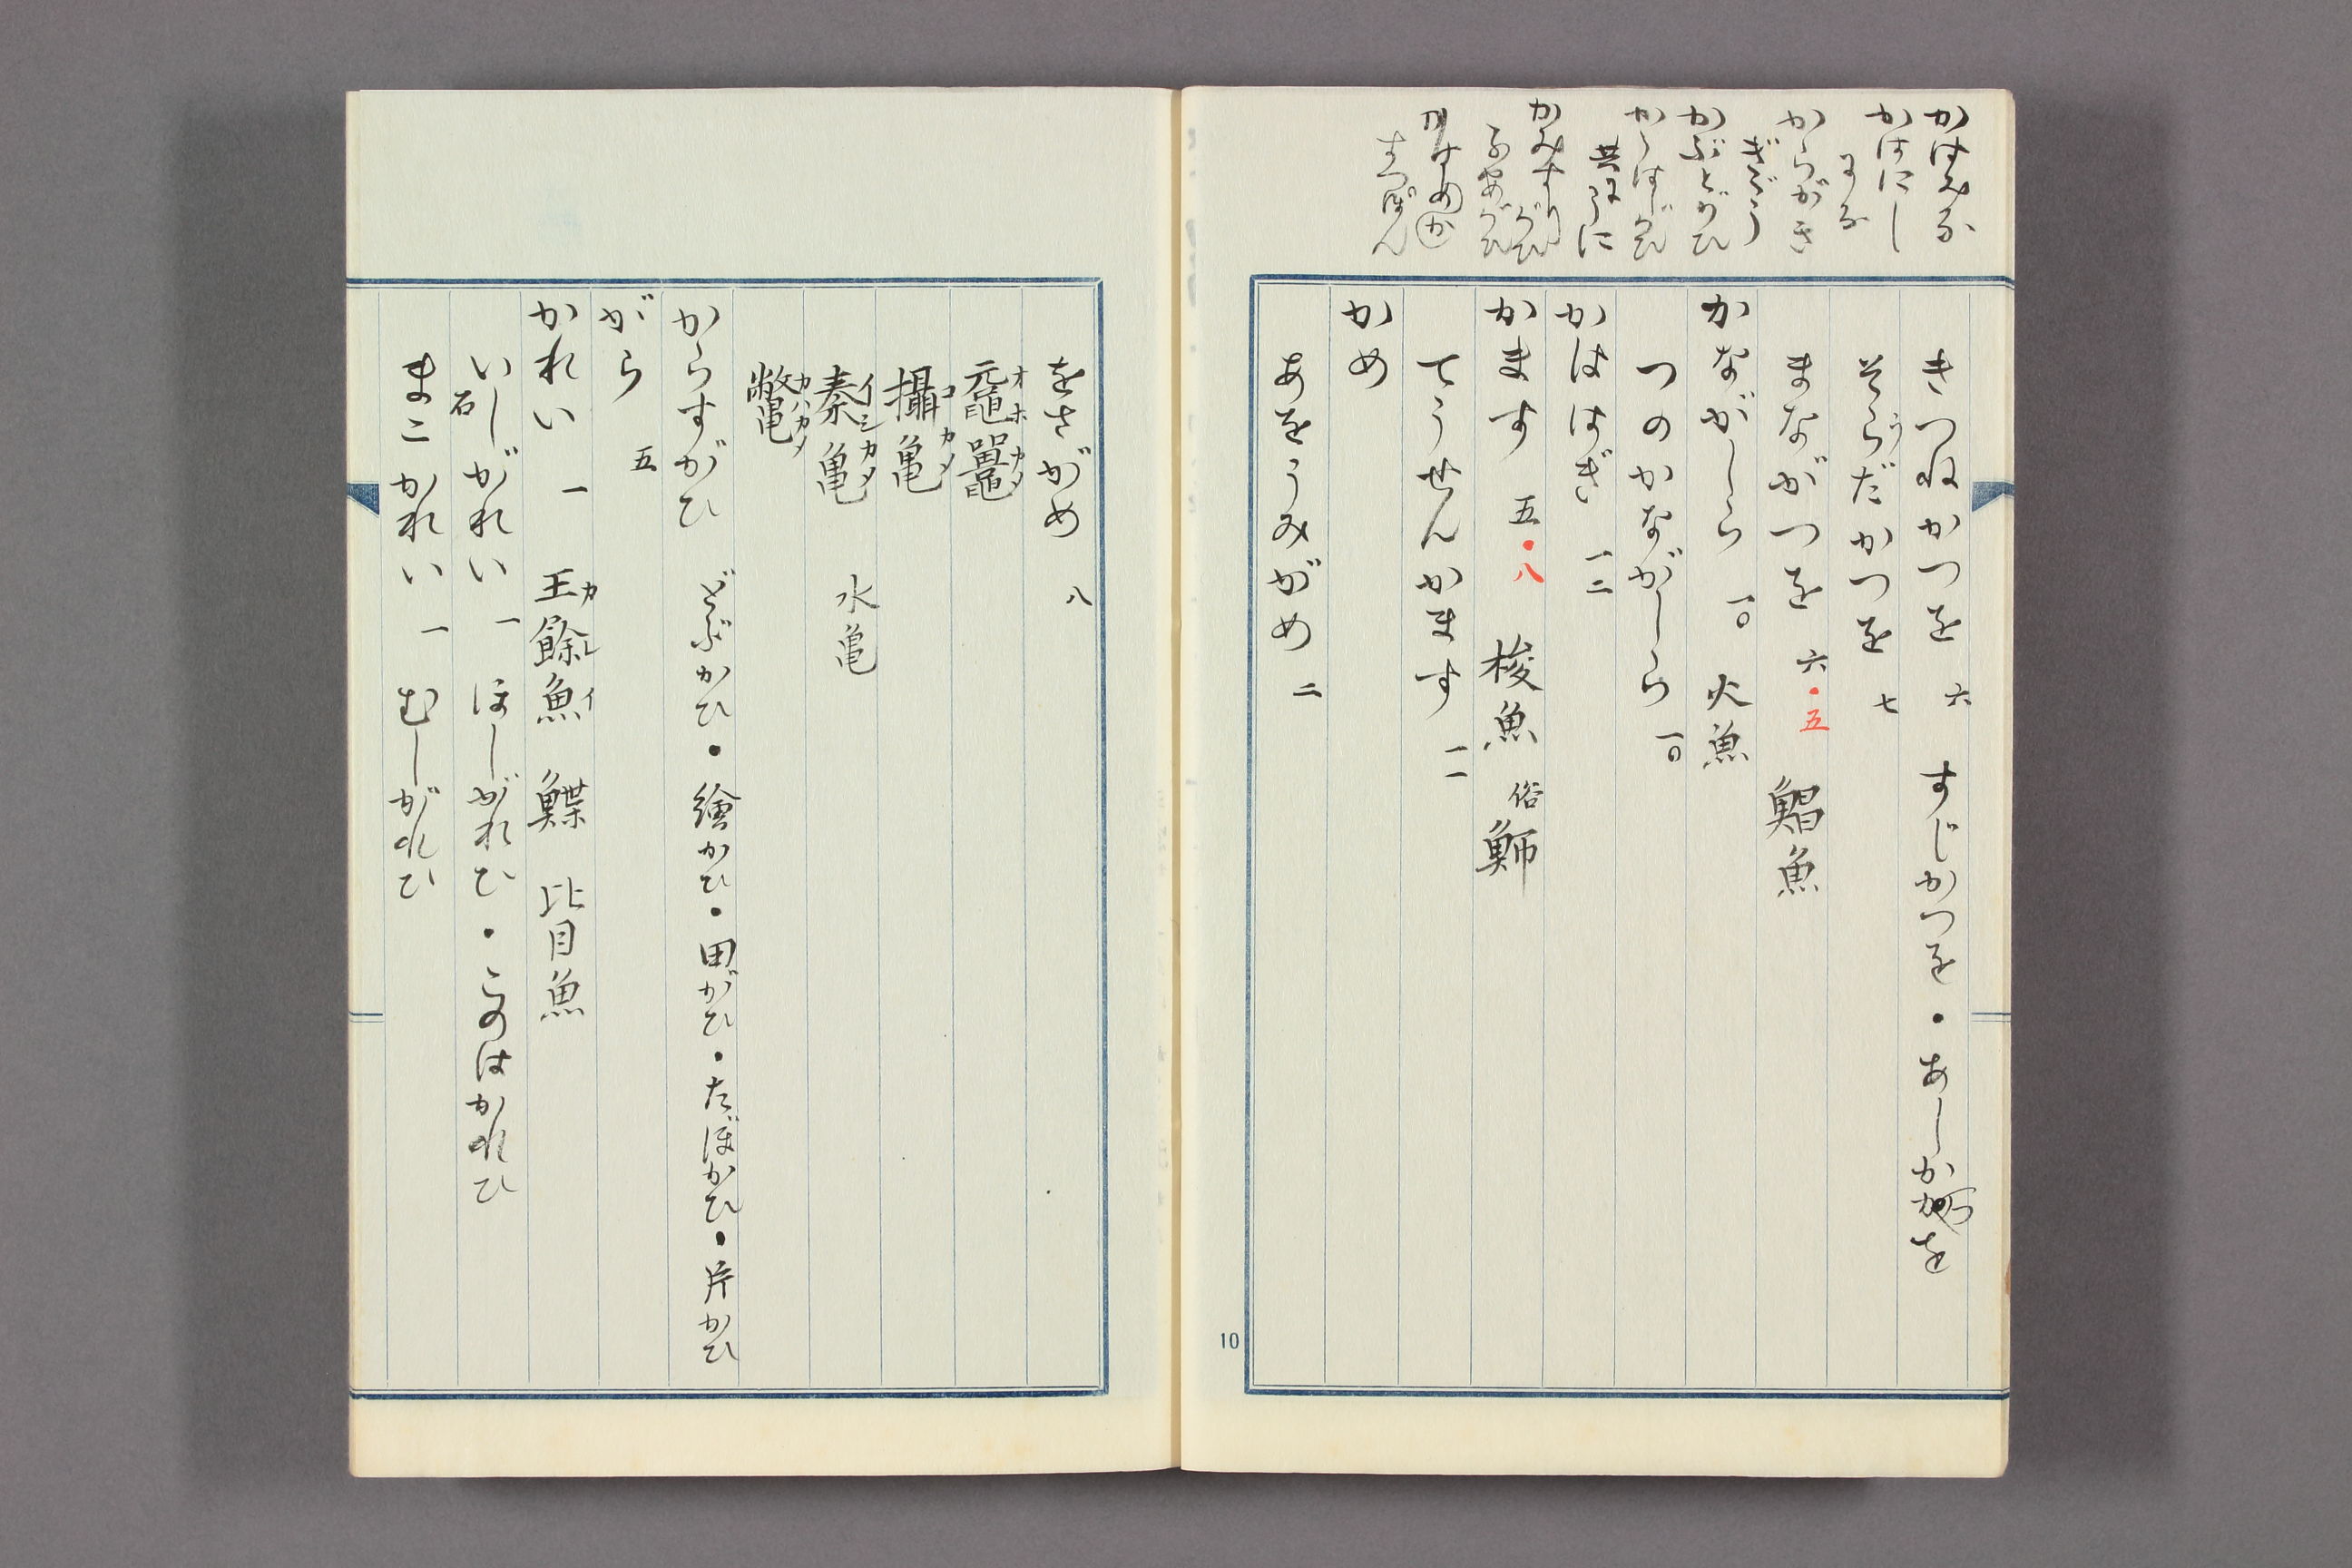 かはえな
かはにし
にな
からがき
ぎばう
かぶとがひ
からはしがひ
共にうに
かみすりがひ
子安がひ
かはめか
すつぽん
きつねかつを 六 すじかつを・あしかつを
そうだかつを 七
まながつを 六・五 鯧魚
かながしら 一〇 火魚
つのかながしら 一〇
かははぎ 一二
かます 五・八 梭魚 俗魳
てうせんかます 一一
かめ
あをうみがめ 二
10
をさがめ 八
黿鼉 オホカメ
攝亀 コカメ
秦亀 イシカメ 水亀
鼈 カハカメ
からすがひ どぶかひ・繪かひ・田がひ・たぼかひ・片かひ
がら 五
かれい 一 王餘魚 カレイ 鰈 比目魚
いしがれい 石 一 ほしがれひ・このはかれひ
まこかれい 一 むしがれひ